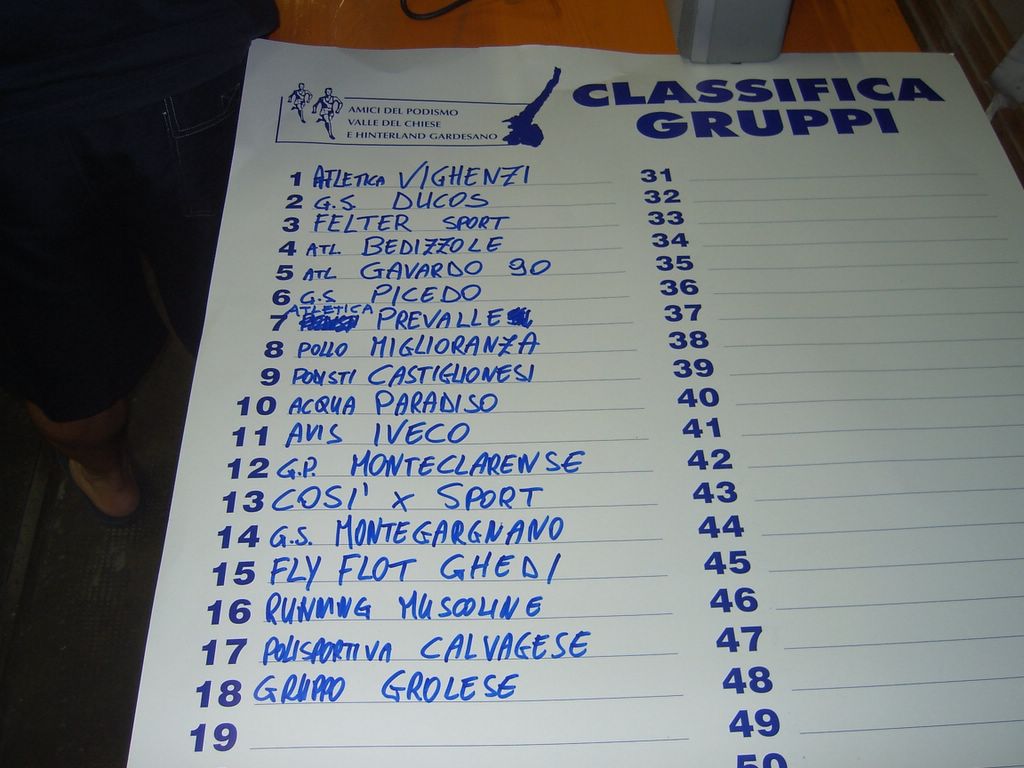 AMICI DEL PODISMO
VALLE DEL CHIESE
E HINTERLAND GARDESANO
CLASSIFICA
GRUPPI
1 ATLETICA VIGHENZI
2 G.S. DUCOS
3 FELTER SPORT
4 ATL BEDIZZOLE
5 ATL GAVARDO 90
6 G.S. PICEDO
7 ATLETICA PREVALLE
8 POLLO MIGLIORANZA
9 PODISTI CASTIGLIONESI
10 ACQUA PARADISO
11 AVIS IVECO
12 G.P. MONTECLARENSE
13 COSI' X SPORT
14 G.S. MONTEGARGNANO
15 FLY FLOT GHEDI
16 RUNNING MUSCOLINE
17 POLISPORTIVA CALVAGESE
18 GRUPPO GROLESE
19
31
32
33
34
35
36
37
38
39
40
41
42
43
44
45
46
47
48
49
50